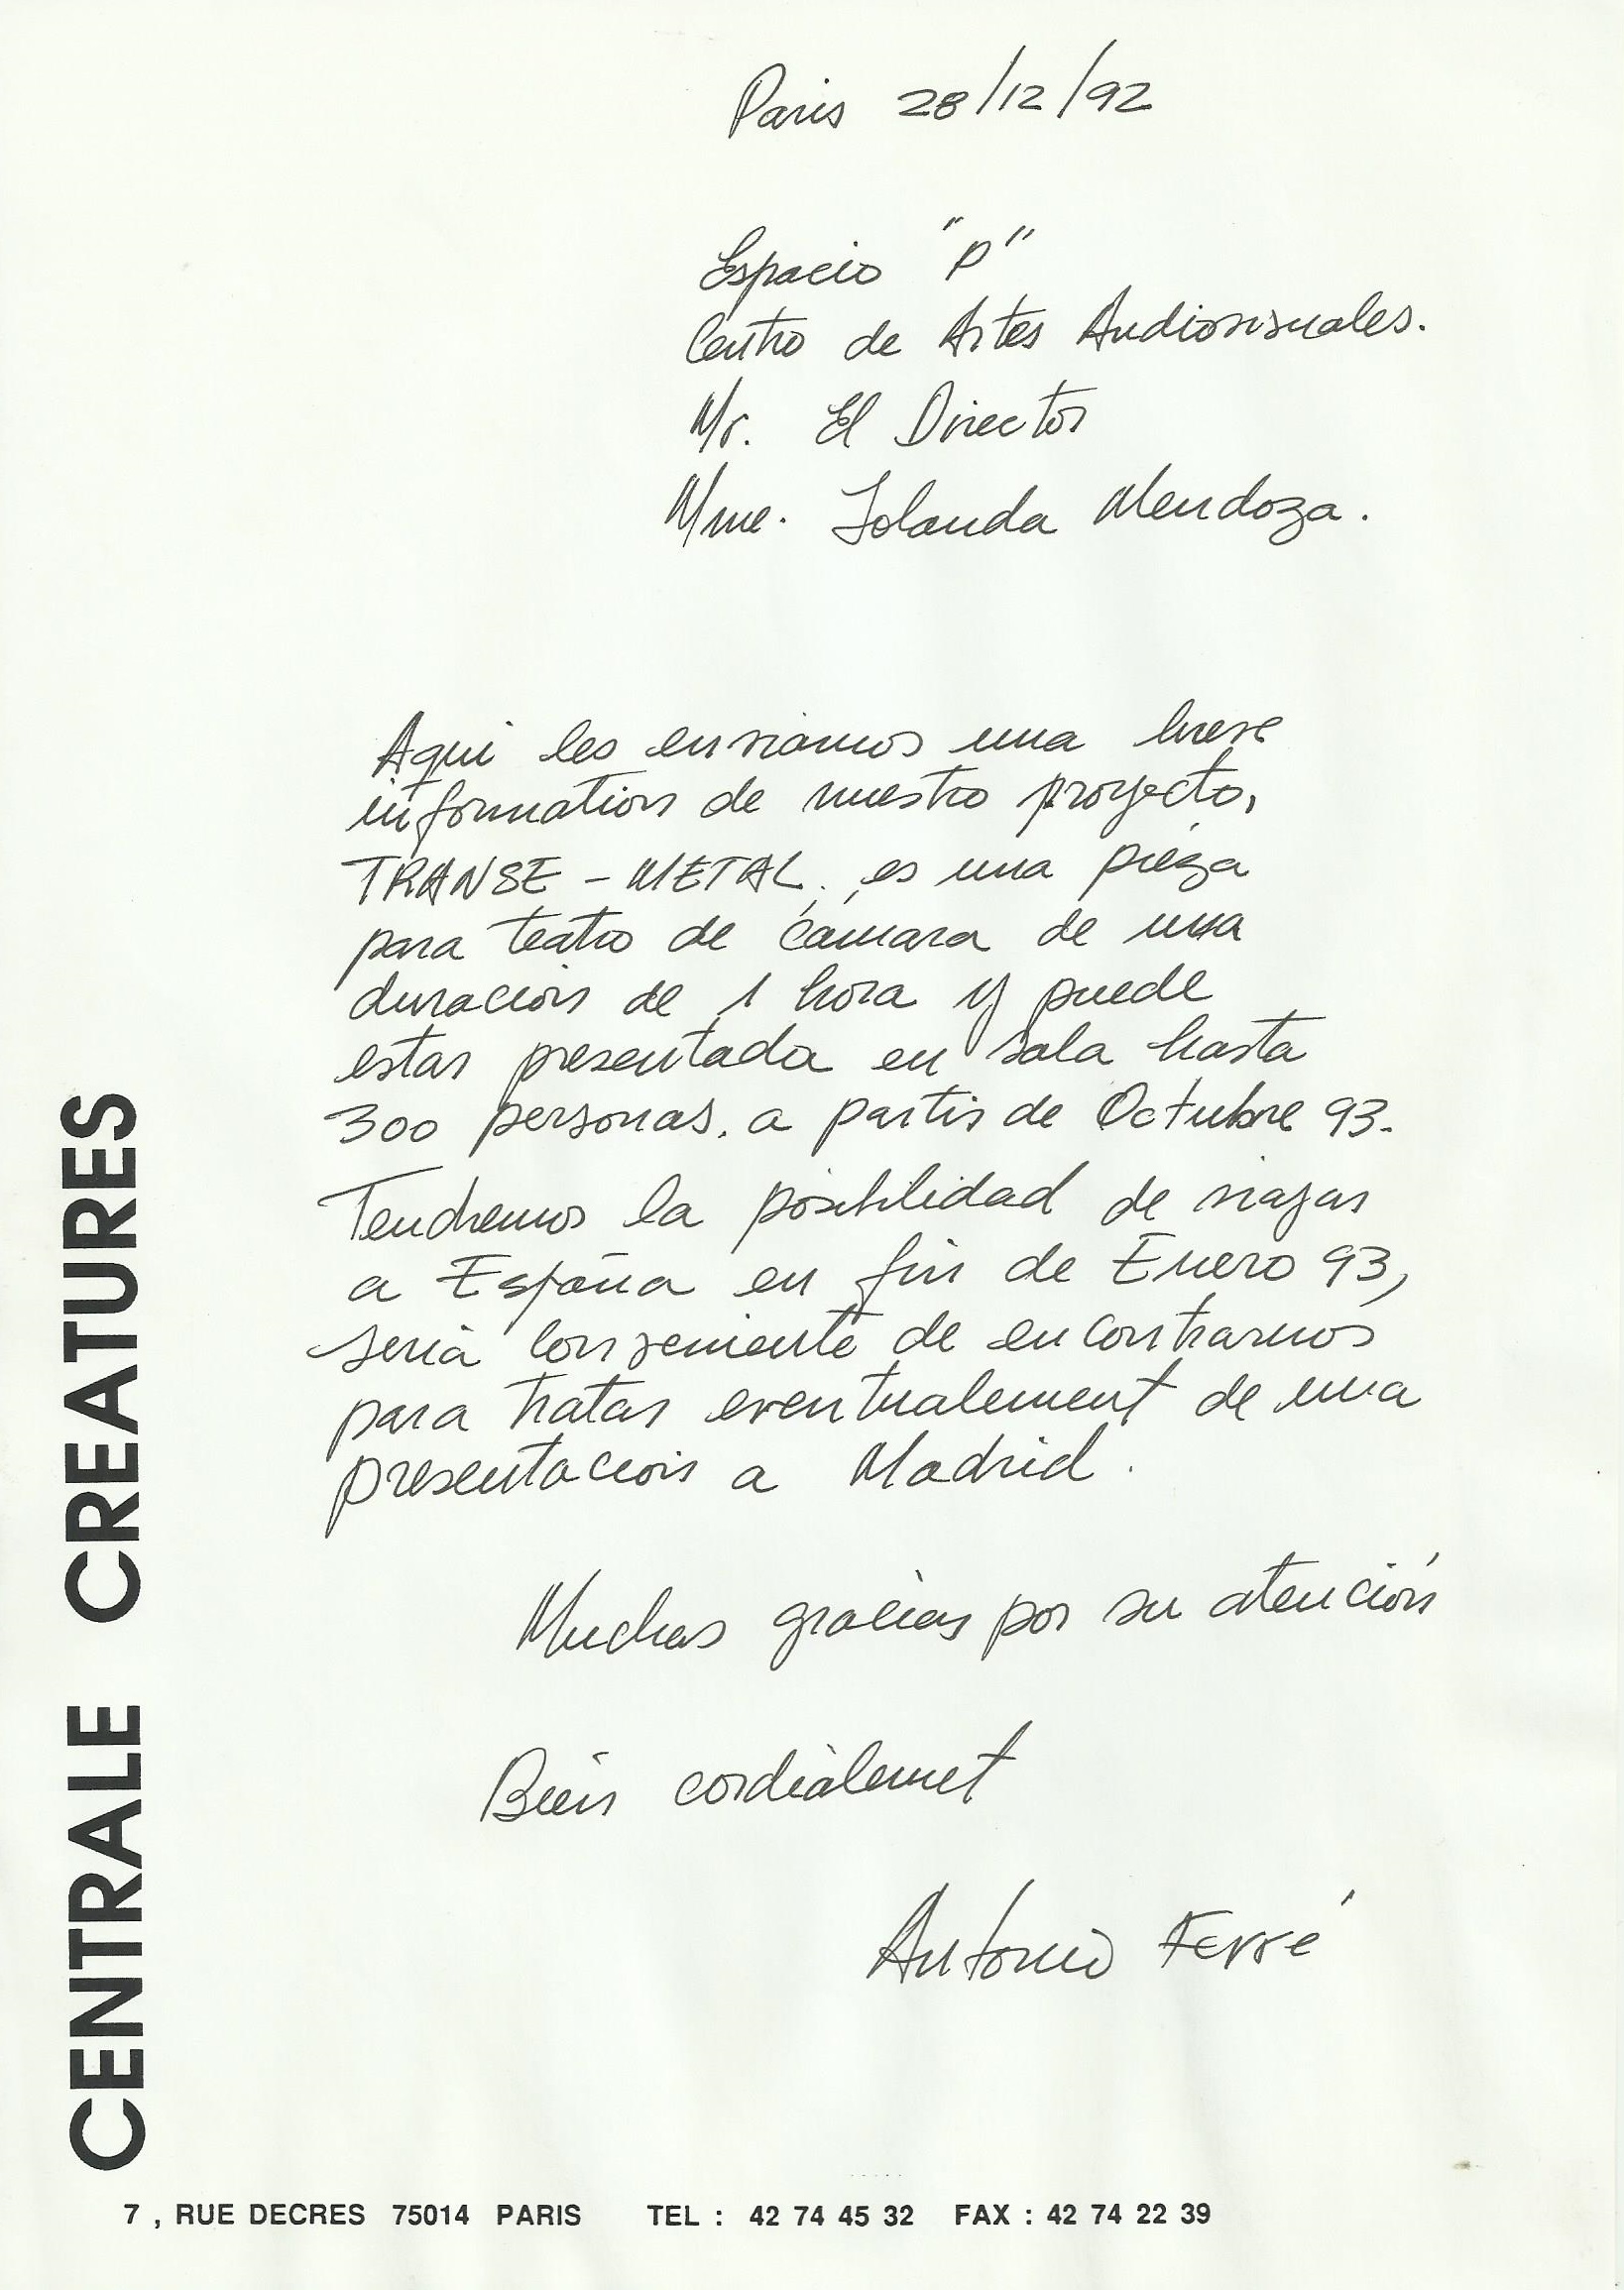 Paris 28/12/92
Espacio "P"
Centro de Artes Audiovisuales.
Mr. El Director
Mme. Iolanda Mendoza.
Aqui les enviamos una breve
information de nuestro proyecto,
TRANSE - METAL, es una pieza
para teatro de cámara de una
duracion de 1 hora y puede
estar presentada en sala hasta
300 personas. a partir de Octubre 93.
Tendremos la posibilidad de viajar
a España en fin de Enero 93,
seria conveniente de encontrarnos
para tratar eventualement de una
presentacion a Madrid.
Muchas gracias por su atención
Bien cordialemet
Antonio Ferré
CENTRALE CREATURES
7 , RUE DECRES 75014 PARIS TEL : 42 74 45 32 FAX : 42 74 22 39